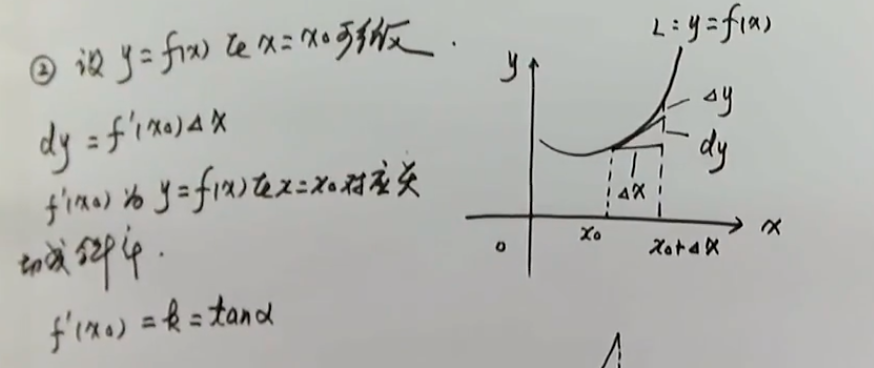 ② 设 y = f(x) 在 x = x₀ 可微.
dy = f'(x₀)Δx
f'(x₀) 为 y = f(x) 在 x = x₀ 对应关
切线斜率.
f'(x₀) = k = tanα
L: y = f(x)
y
Δy
dy
Δx
0
x₀
x₀+Δx
x